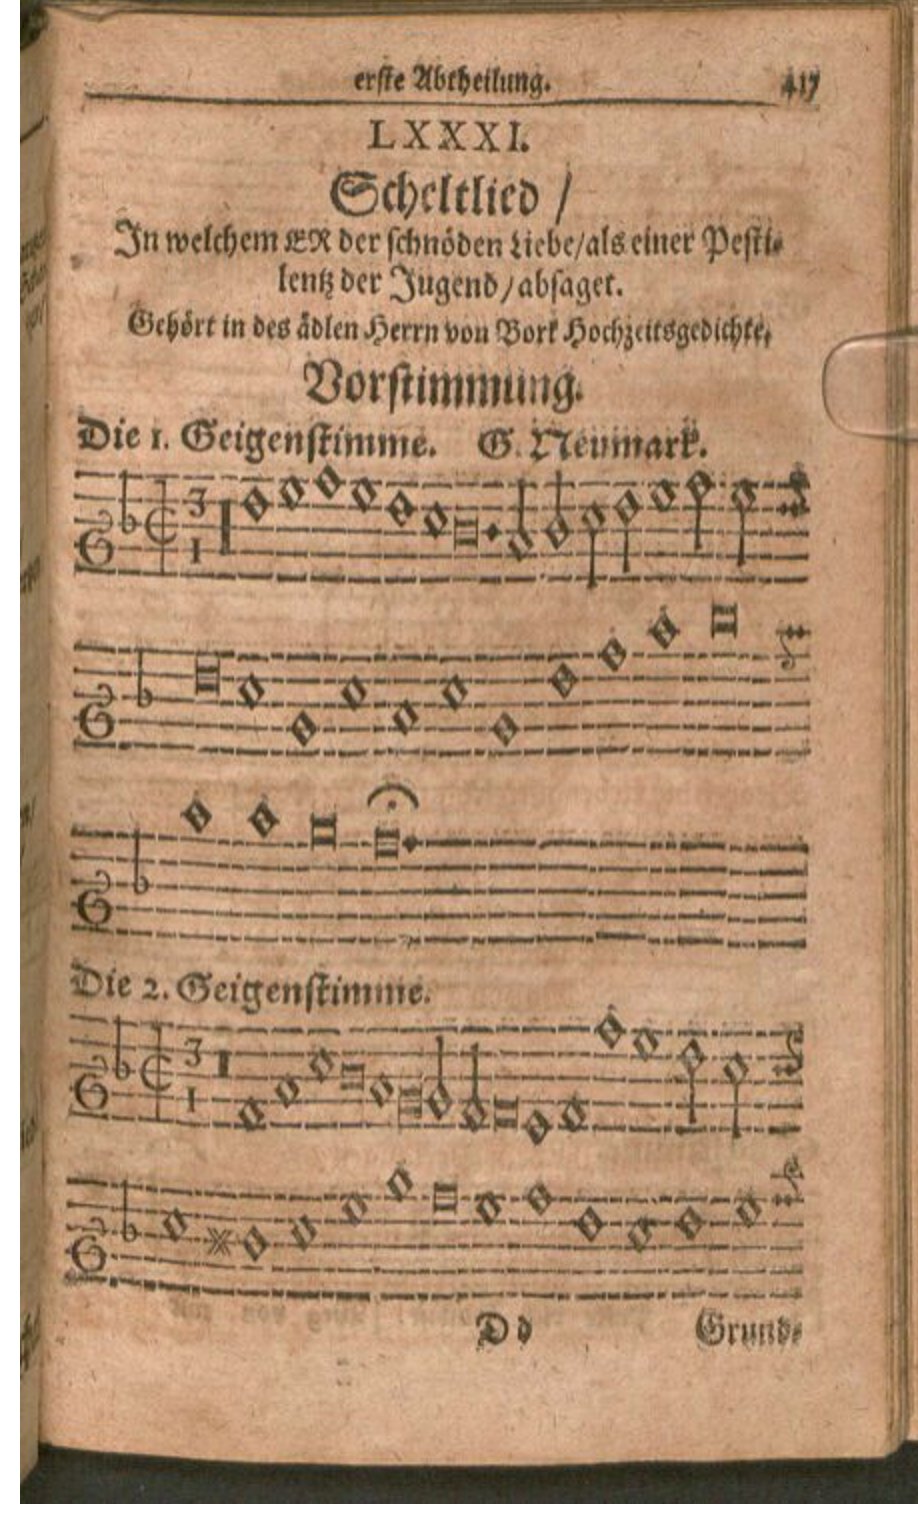 erste Abtheilung. 417
LXXXI.
Scheltlied /
In welchem ER der schnöden Liebe/als einer Pesti-
lentz der Jugend/absaget.
Gehört in des ädlen Herrn von Bork Hochzeitsgedichte,
Vorstimmung.
Die 1. Geigenstimme. G. Neumark.
3
1
Die 2. Geigenstimme.
3
1
Dd Grund-